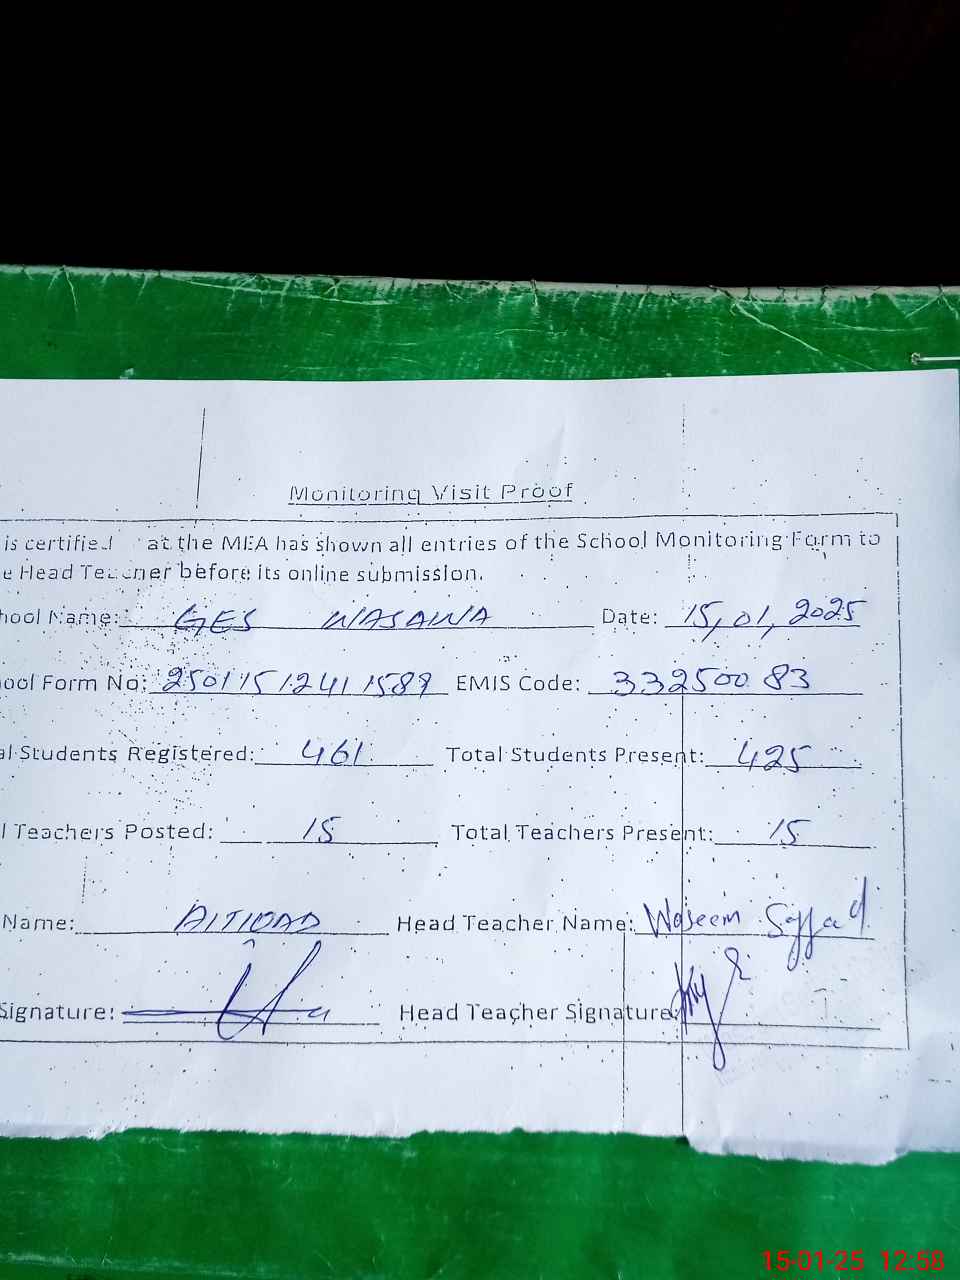 Monitoring Visit Proof
is certified at the MEA has shown all entries of the School Monitoring Form to
e Head Teacher before its online submission.
hool Name: GES WASAWA Date: 15,01,2025
ool Form No: 2501151241 1589 EMIS Code: 33250083
al Students Registered: 461 Total Students Present: 425
l Teachers Posted: 15 Total Teachers Present: 15
Name: Head Teacher Name: Waseem Sajjad
Signature: Head Teacher Signature:
15-01-25 12:58